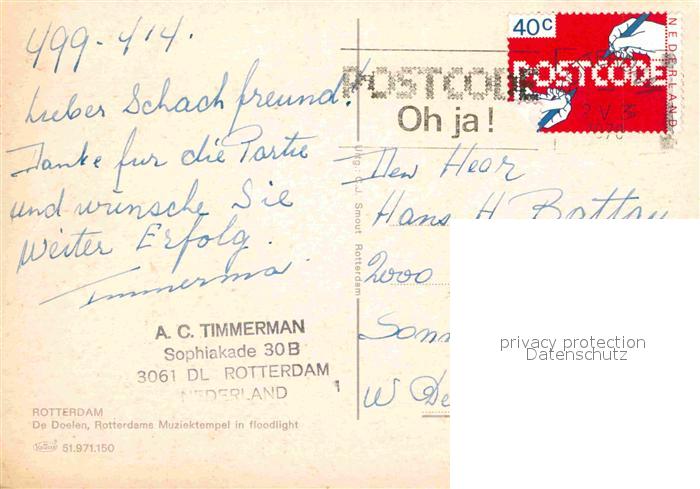 499-414.
Lieber Schachfreund!
Danke fur die Partie
und wünsche Sie
Weiter Erfolg.
Timmerman
A. C. TIMMERMAN
Sophiakade 30B
3061 DL ROTTERDAM
NEDERLAND
ROTTERDAM
De Doelen, Rotterdams Muziektempel in floodlight
51.971.150
Uitg.: C.J. Smout Rotterdam
40c
NEDERLAND
POSTCODE
POSTCODE
Oh ja!
Den Hear
Hans H
2000
W De
privacy protection
Datenschutz